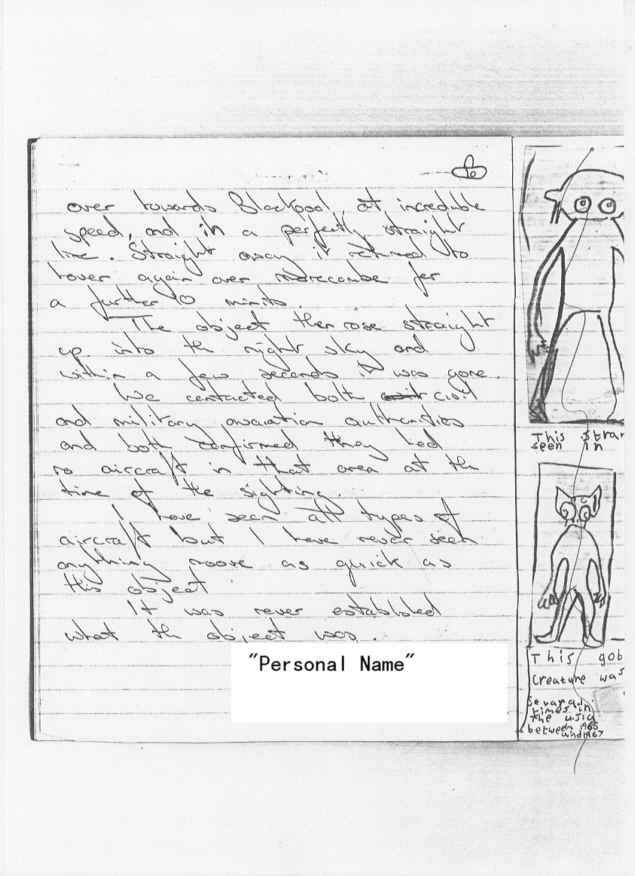 over towards Blackpool at increduble
speed, and in a perfectly straight
line. Straight away it returned to
hover again over morecambe for
a further 10 minits.
The object then rose straight
up into the night sky and
within a few seconds it was gone.
We contacted both civil
and military avaiation authorities
and both confirmed they had
no aircraft in that area at the
time of the sighting.
I have seen all types of
aircraft but I have never seen
anything moove as quick as
this object.
It was never established
what the object was.
"Personal Name"
This stran
seen in
This gob
Creature was
Severa
times in
the usia
between 1965
and 1967